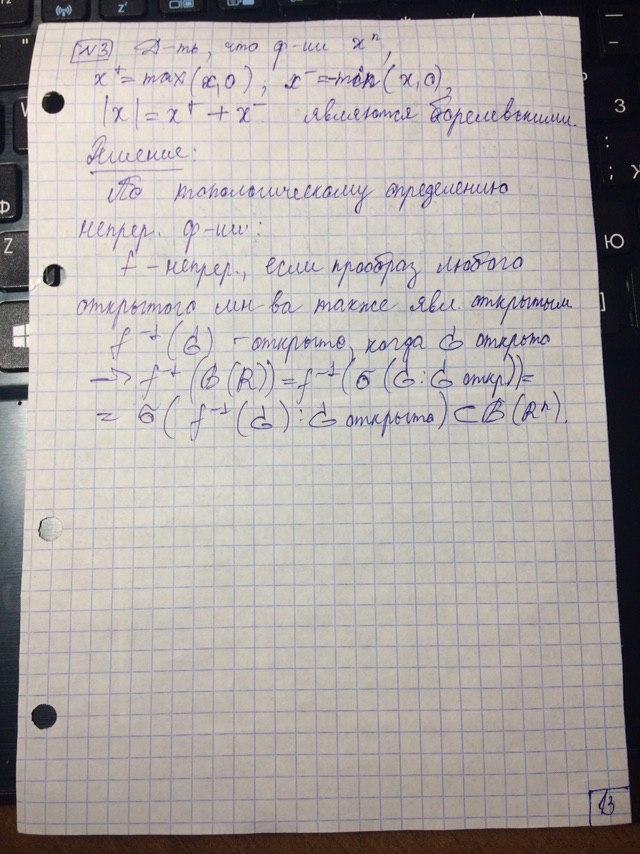 N3 Д-ть, что ф-ии xⁿ,
x⁺=max(x,0), x⁻=-min(x,0),
|x|=x⁺+x⁻ являются борелевскими.
Решение:
По топологическому определению
непрер. ф-ии:
f - непрер., если прообраз любого
открытого мн-ва также явл. открытым
f⁻¹(G) - открыто, когда G открыто
→ f⁻¹(B(R))=f⁻¹(σ(G:G откр))=
= σ(f⁻¹(G):G открыто)⊂B(Rⁿ).
Z
Ю
13